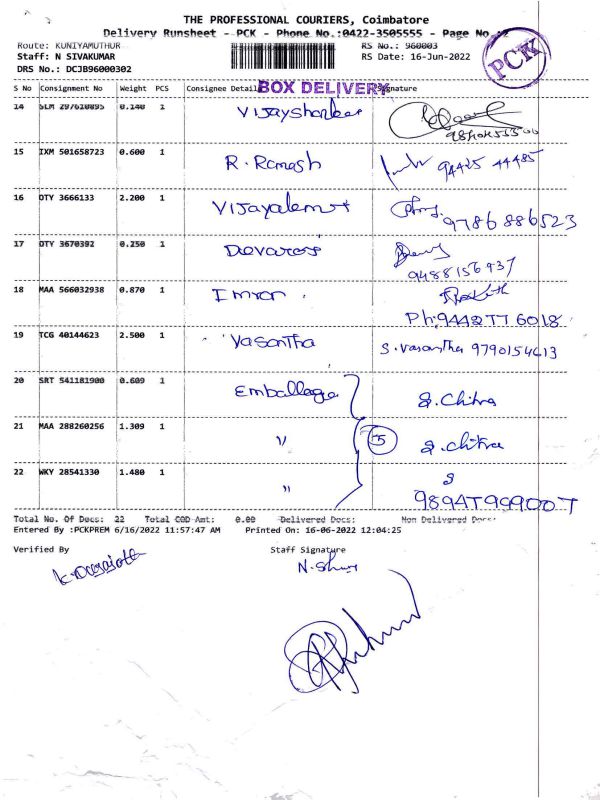 THE PROFESSIONAL COURIERS, Coimbatore
Delivery Runsheet - PCK - Phone No.:0422-3505555 - Page No.:2
Route: KUNIYAMUTHUR
RS No.: 960003
Staff: N SIVAKUMAR
RS Date: 16-Jun-2022
DRS No.: DCJB96000302
PCK
S No Consignment No Weight PCS Consignee Details Signature
BOX DELIVERY
14 SLM 297610895 0.140 1 Vijayshankar
15 IXM 501658723 0.600 1 R. Ramesh 94425 44485
16 OTY 3666133 2.200 1 9786886523
17 OTY 3670392 0.250 1 Devaraj
9488156937
18 MAA 566032938 0.870 1 Imran
Ph:9442776018
19 TCG 40144623 2.500 1 Vasantha S. Vasantha 9790154613
20 SRT 541181900 0.609 1 Emballage S. Chitra
21 MAA 288260256 1.309 1 " 5 S. Chitra
22 WKY 28541330 1.480 1 "
9894799007
Total No. Of Docs: 22 Total COD Amt: 0.00 Delivered Docs: Non Delivered Docs:
Entered By :PCKPREM 6/16/2022 11:57:47 AM Printed On: 16-06-2022 12:04:25
Verified By Staff Signature